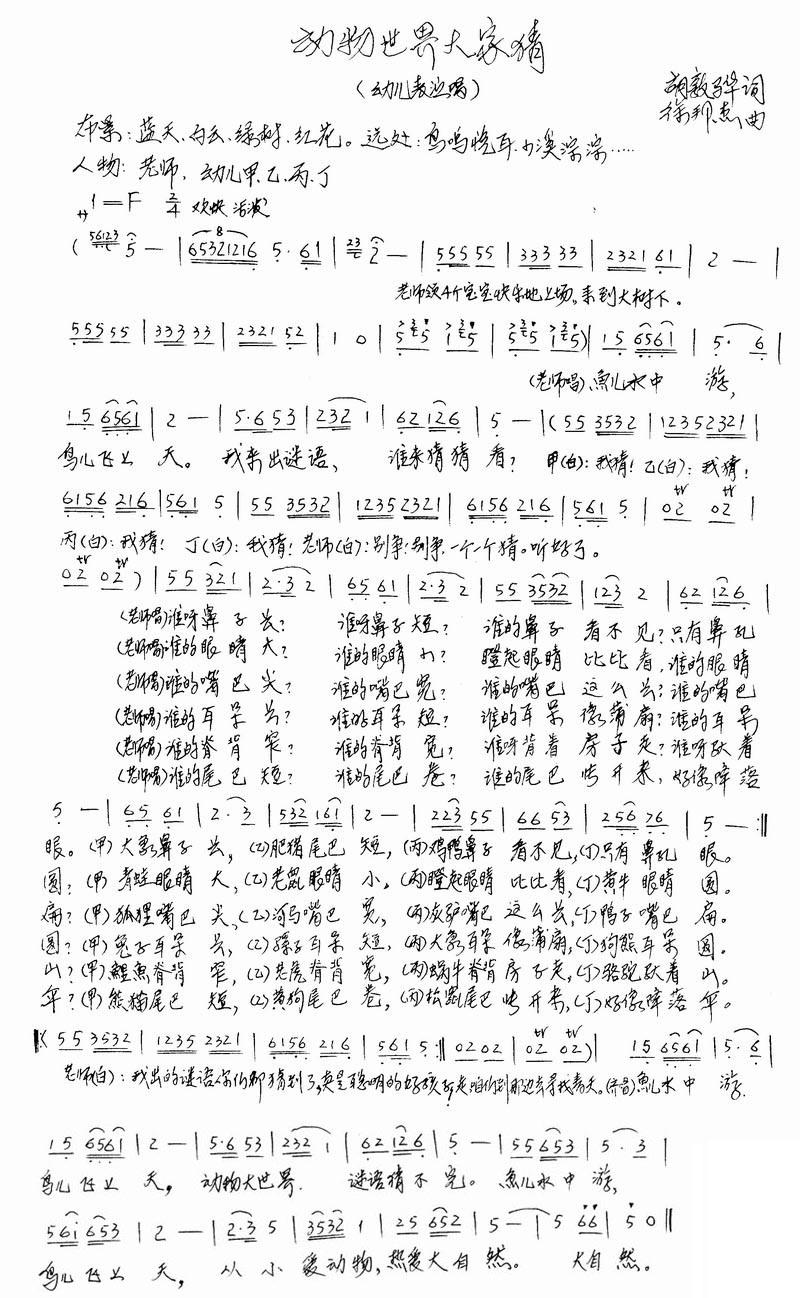 动物世界大家猜
（幼儿表演唱）
胡敦骅 词
徐邦杰 曲
布景：蓝天、白云、绿树、红花。远处：鸟鸣悦耳、小溪淙淙……
人物：老师、幼儿甲、乙、丙、丁
1=F 2/4 欢快 活泼
(56123 5 — | 65321216 5·61 | 23 2 — | 555 55 | 333 33 | 2321 61 | 2 — |
老师领4个宝宝快乐地上场。来到大树下。
555 55 | 333 33 | 2321 52 | 1 0 | 5 5 1 5 | 5 5 1 5) | 15 6561 | 5· 6 |
(老师唱)魚儿水中 游，
15 6561 | 2 — | 5·6 53 | 232 1 | 62 126 | 5 — | (55 3532 | 12352321 |
鸟儿飞上 天。 我来出谜语、 谁来猜猜 看？ 甲(白)：我猜！乙(白)：我猜！
6156 216 | 561 5 | 55 3532 | 1235 2321 | 6156 216 | 561 5 | 02 02 |
丙(白)：我猜！ 丁(白)：我猜！老师(白)：别争！别争、一个一个猜。听好了。
02 02 ) | 55 321 | 2·3 2 | 65 61 | 2·3 2 | 55 3532 | 123 2 | 62 126 |
(老师唱)谁呀鼻 子 长？ 谁呀鼻子 短？ 谁的鼻子 看不 见？只有鼻孔
(老师唱)谁的眼 睛 大？ 谁的眼睛 小？ 瞪起眼睛 比比 看，谁的眼睛
(老师唱)谁的嘴 巴 尖？ 谁的嘴巴 宽？ 谁的嘴巴 这么 长？谁的嘴巴
(老师唱)谁的耳 朵 长？ 谁的耳朵 短？ 谁的耳朵 像蒲扇？谁的耳朵
(老师唱)谁的脊 背 窄？ 谁的脊背 宽？ 谁呀背着 房子 走？谁呀驮着
(老师唱)谁的尾 巴 短？ 谁的尾巴 卷？ 谁的尾巴 味开来，好像降落
5 — | 65 61 | 2·3 | 532 161 | 2 — | 223 55 | 66 53 | 256 76 | 5 — :||
眼。(甲)大象鼻子 长，(乙)肥猪尾巴 短，(丙)鸡鸭鼻子 看不见，(丁)只有 鼻孔 眼。
圆？(甲)青蛙眼睛 大，(乙)老鼠眼睛 小，(丙)瞪起眼睛 比比看，(丁)黄牛 眼睛 圆。
扁？(甲)狐狸嘴巴 尖，(乙)河马嘴巴 宽，(丙)灰驴嘴巴 这么长，(丁)鸭子 嘴巴 扁。
圆？(甲)兔子耳朵 长，(乙)猴子耳朵 短，(丙)大象耳朵 像蒲扇，(丁)狗熊耳朵 圆。
山？(甲)鲤魚脊背 窄，(乙)老虎脊背 宽，(丙)蜗牛脊背 房子走，(丁)骆驼驮着 山。
伞？(甲)熊猫尾巴 短，(乙)黄狗尾巴 卷，(丙)松鼠尾巴 味开来，(丁)好像降落 伞。
||:(55 3532 | 1235 2321 | 6156 216 | 561 5 :|| 02 02 | 02 02) | 15 6561 | 5· 6 |
老师(白)：我出的谜语你们都猜到了，真是聪明的好孩子，走咱们到那边去寻找春天。(齐唱)魚儿水 中 游.
15 6561 | 2 — | 5·6 53 | 232 1 | 62 126 | 5 — | 55 653 | 5· 3 |
鸟儿飞上 天， 动物大世界. 谜语猜不 完。 魚儿水中 游，
561 653 | 2 — | 2·3 5 | 3532 1 | 25 652 | 5 — | 5 66 | 5 0 ||
鸟儿飞上 天， 从 小 爱动物，热爱大自 然。 大自 然。